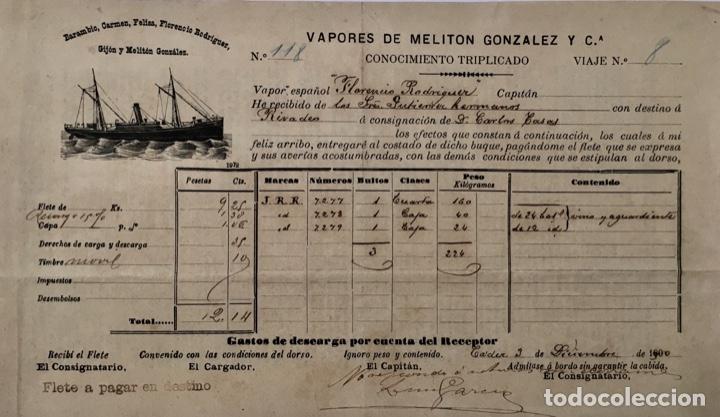 Barambio, Carmen, Felisa, Florencio Rodriguez,
Gijón y Melitón González.
VAPORES DE MELITON GONZALEZ Y C.A
N.º 118 CONOCIMIENTO TRIPLICADO VIAJE N.º 8
Vapor español "Florencio Rodriguez" Capitán
He recibido de los Sres. Gutierrez hermanos con destino á
Rivadeo á consignación de D. Carlos Casas
los efectos que constan á continuación, los cuales á mi
feliz arribo, entregaré al costado de dicho buque, pagándome el flete que se expresa
y sus averías acostumbradas, con las demás condiciones que se estipulan al dorso,
Pesetas Cts. Marcas Números Bultos Clases Peso Kilógramos Contenido
Flete de Ks. 9 25 J. R. R. 7277 1 Cuarta 160
10% 1.38 id 7278 1 Caja 40 de 24 bots vino y aguardiente
Capa p. S° 1.06 id 7279 1 Caja 24 de 12 id
Derechos de carga y descarga 35 3 224
Timbre movil 10
Impuestos
Desembolsos
Total...... 12.14
Gastos de descarga por cuenta del Receptor
Recibí el Flete Convenido con las condiciones del dorso. Ignoro peso y contenido. Cadiz 3 de Diciembre de 1900
El Consignatario. El Cargador. El Capitán, Admítase á bordo sin garantir la cabida.
El Consignatario,
Flete a pagar en destino
García
todocoleccion.net